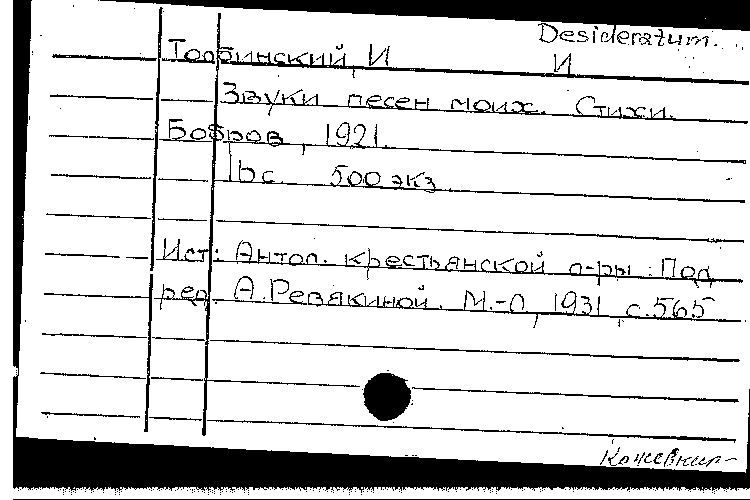 Desideratum.
Толбинский, И И
Звуки песен моих. Стихи.
Бобров, 1921.
16 с. 500 экз.
Ист: Антол. крестьянской л-ры. Под
ред. А. Ревякиной. М.-Л, 1931, с. 565